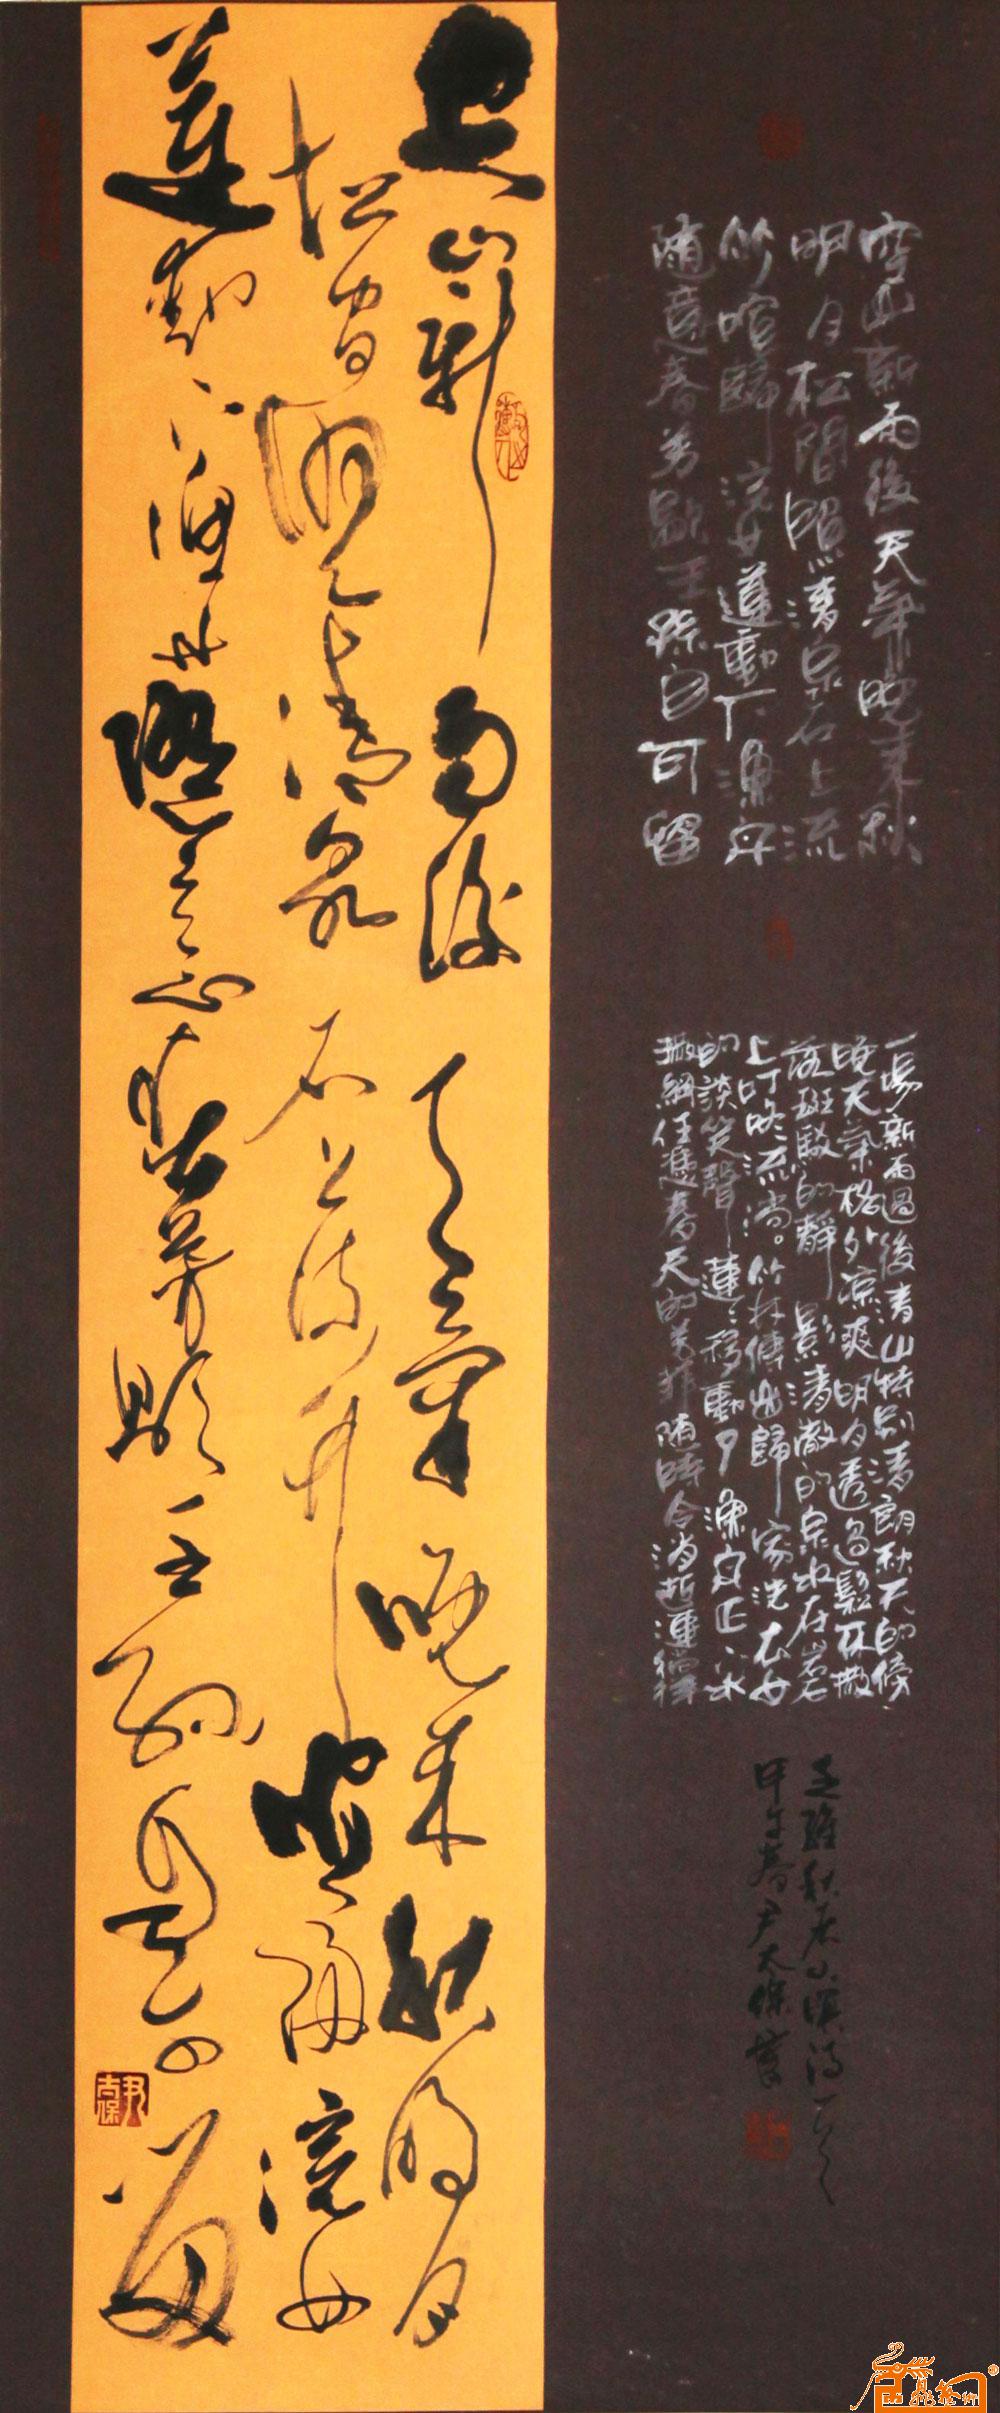 空山新雨後天氣晚来秋
明月松間照清泉石上流
竹喧歸浣女蓮動下漁舟
随意春芳歇王孫自可留
一場新雨過後青山特别清朗秋天的傍
晚天氣格外凉爽明月透過鬆林撒
落斑駁的静影清澈的泉水在岩石
上叮咚流淌。竹林傳出歸家洗衣女
的談笑聲蓮移動了漁舟正下水
撒網任憑春天的芳菲随時令消逝
王維秋居山溟詩一首
甲午春尹大保書
空山新雨後天氣晚来秋明月
松間照清泉石上流竹喧歸浣女
蓮動下漁舟随意春芳歇王孫自可留